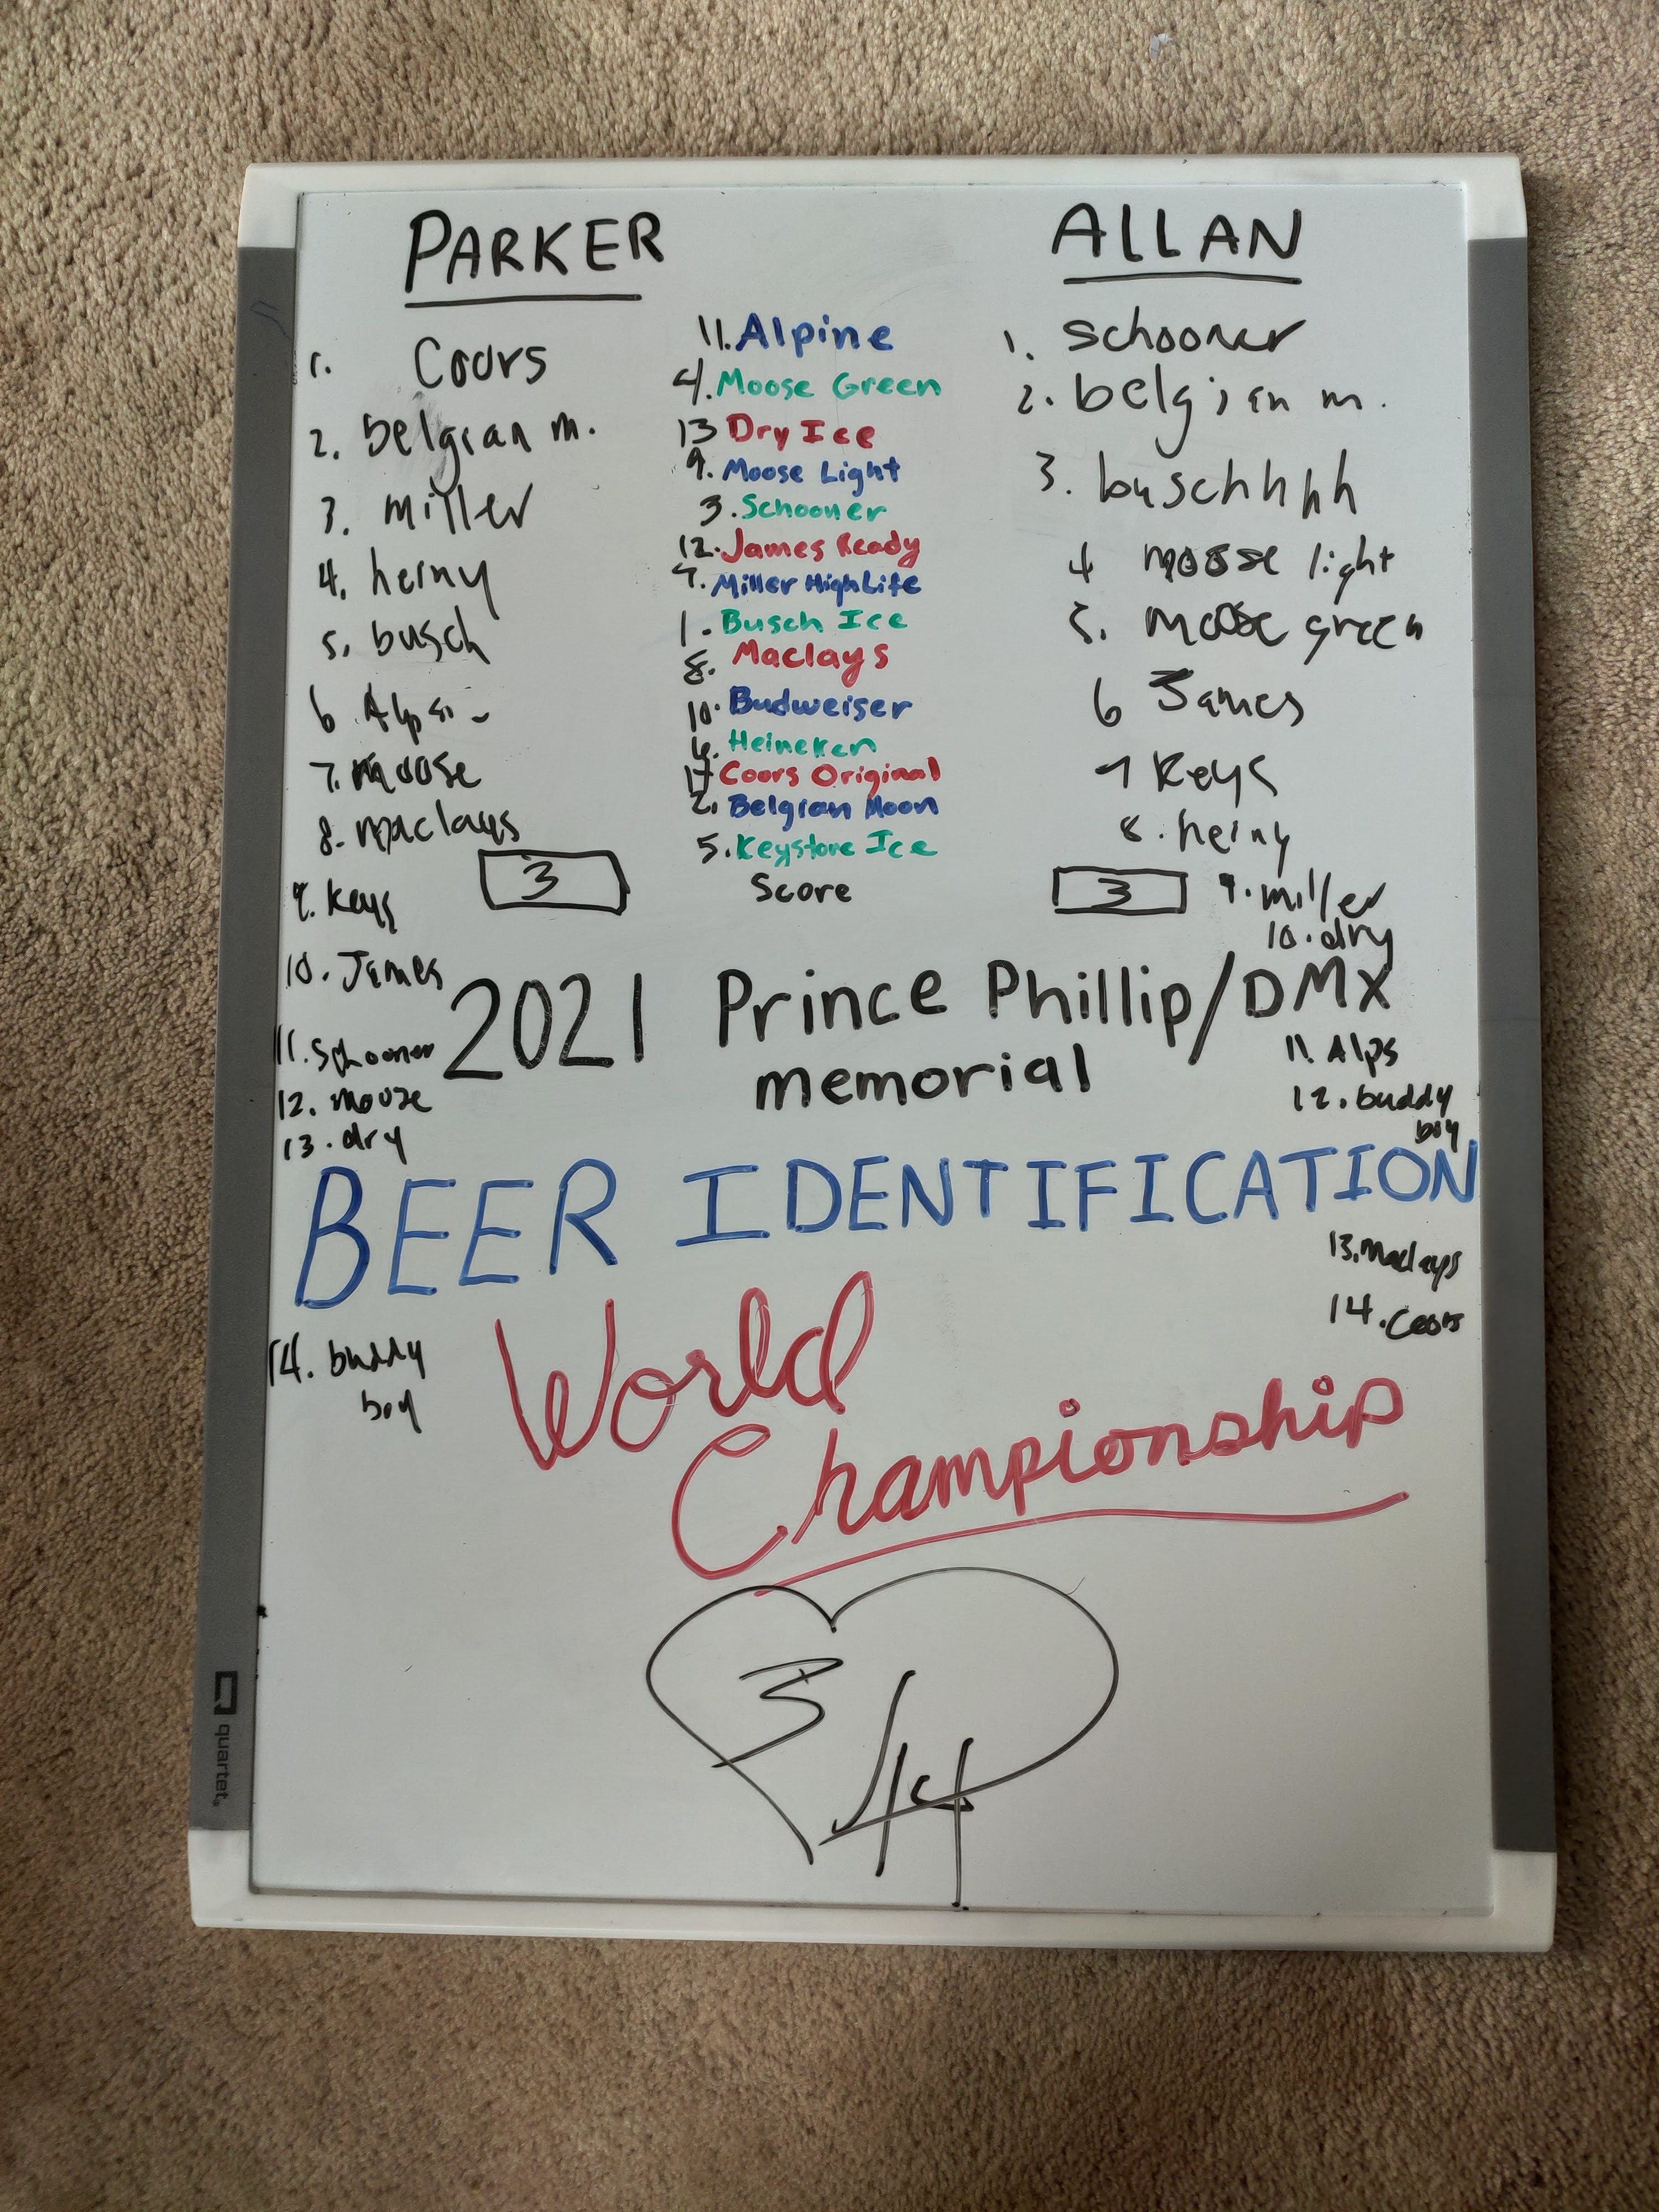 PARKER
1. Coors
2. belgian m.
3. miller
4. heiny
5. busch
6
7. moose
8. maclays
3
9. Keys
10. James
11. Schooner
12. moose
13. dry
14. buddy
boy
11. Alpine
4. Moose Green
13 Dry Ice
9. Moose Light
3. Schooner
12. James Ready
7. Miller High Life
1. Busch Ice
8. Maclays
10. Budweiser
6. Heineken
Coors Original
2. Belgian Moon
5. Keystone Ice
Score
ALLAN
1. Schooner
2. belgian m.
3. buschhhh
4 moose light
5. moose green
6 James
7 Keys
8. heiny
3
9. miller
10. dry
11. Alps
12. buddy
boy
13. Maclays
14. Coors
2021 Prince Phillip/DMX
memorial
BEER IDENTIFICATION
World
Championship
3/14
quartet